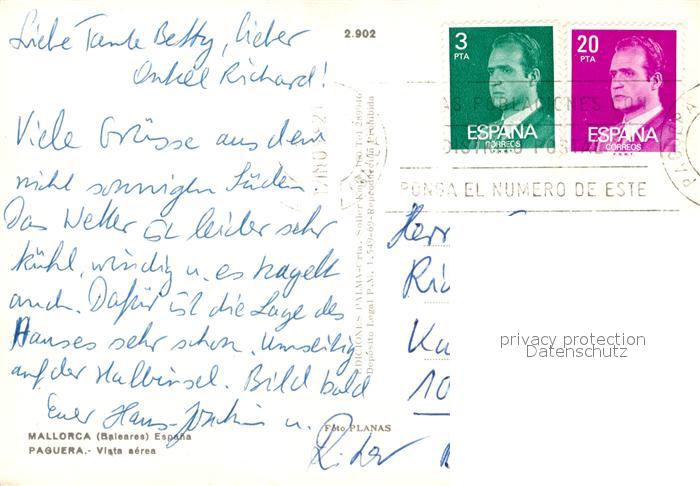 Liebe Tante Betty, lieber
Onkel Richard!
Viele Grüsse aus dem
nicht sonnigen Süden
Das Wetter ist leider sehr
kühl, windig u. es hagelt
auch. Dafür ist die Lage des
Hauses sehr schön. Umseitig
auf der Halbinsel. Bild bald
Euer Hans-Joachim u.
MALLORCA (Baleares) España
PAGUERA.- Vista aérea
2.902
EDICIONES PALMA
Depósito Legal P.M. 1.549-69-Reproducción Prohibida
Foto PLANAS
3
PTA
ESPAÑA
CORREOS
F.N.M.T.
20
PTA
ESPAÑA
CORREOS
F.N.M.T.
POBLACIONES CON
DISTRITO POSTAL
PONGA EL NUMERO DE ESTE
Herr
Ric
Ku
10
privacy protection
Datenschutz